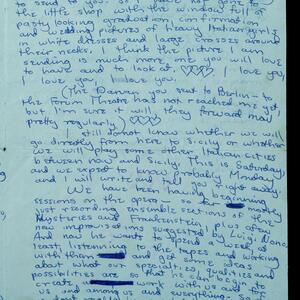 to send to you. So
the little shop with the window full of
pasty looking graduation, confirmation
and wedding pictures of heavy Italian girls
in white dresses and large crosses around
their necks, I think the picture I am
sending is much more one you will love
to have and to look at. ♡♡♡♡ I love you,
I love you, I love you.
(The Danvan you sent to Berlin - to
the Forum Theatre had not reached me yet,
but I'm sure it will, they forward mail
pretty regularly)
I still do not know whether we will
go directly from here to Sicily or whether
we will play some other Italian cities
between now and Sicily. This is Saturday
and we expect to know probably Monday
and I will write and tell you right away.
We have been having beginning
sessions on the opera - so far
just recording ensemble sections of the
Mysteries and Frankenstein, plus a few
new improvisations suggested by Nono.
And now he wants to spend a week at
least, listening to the tapes and working
with them and
about what our specialized
possibilities are so that he can begin to
create work with us and
and among us and everything. So